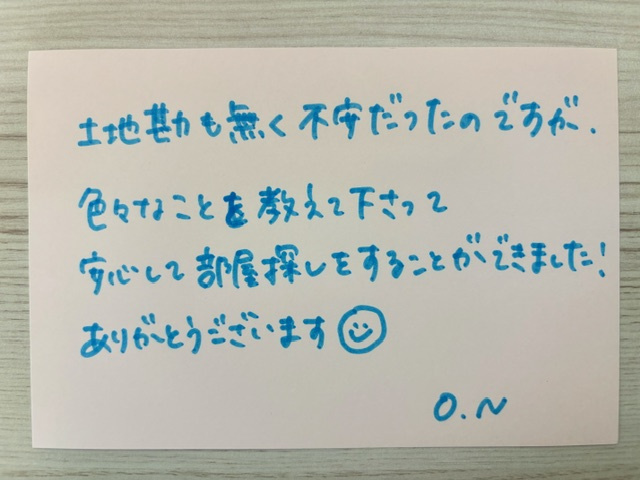 土地勘も無く不安だったのですが、
色々なことを教えて下さって
安心して部屋探しをすることができました!
ありがとうございます
O.N